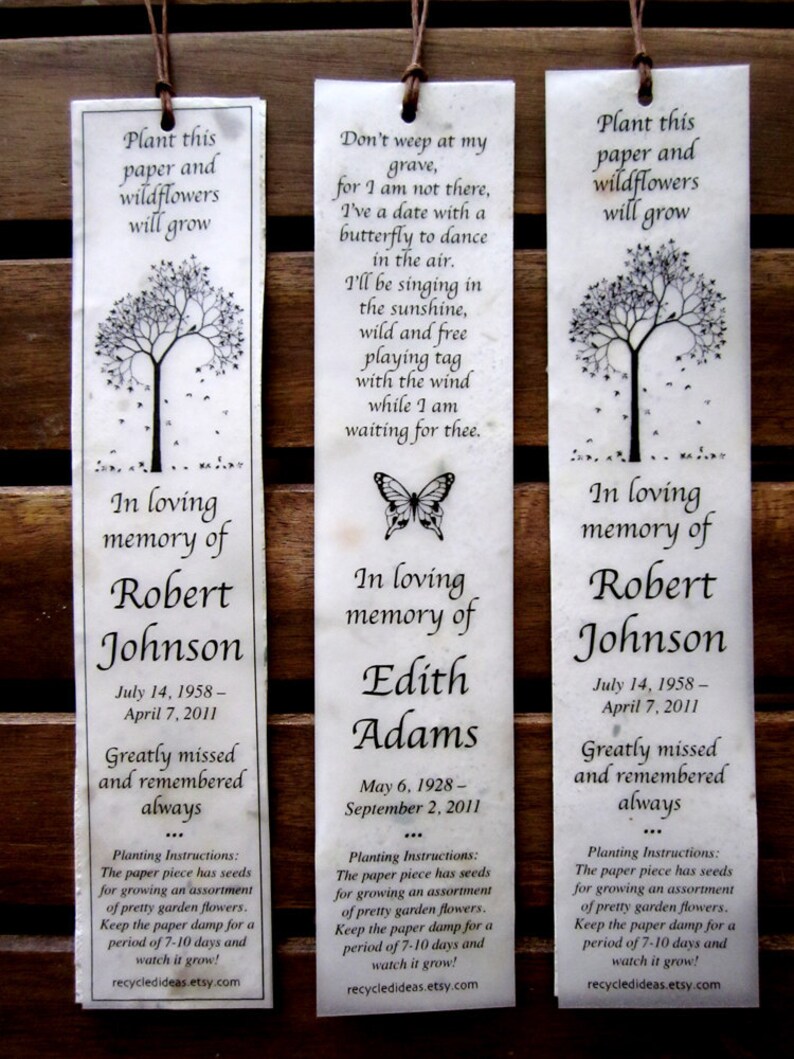 Plant this
paper and
wildflowers
will grow
In loving
memory of
Robert
Johnson
July 14, 1958 –
April 7, 2011
Greatly missed
and remembered
always
...
Planting Instructions:
The paper piece has seeds
for growing an assortment
of pretty garden flowers.
Keep the paper damp for a
period of 7-10 days and
watch it grow!
recycledideas.etsy.com
Don't weep at my
grave,
for I am not there,
I've a date with a
butterfly to dance
in the air.
I'll be singing in
the sunshine,
wild and free
playing tag
with the wind
while I am
waiting for thee.
In loving
memory of
Edith
Adams
May 6, 1928 –
September 2, 2011
...
Planting Instructions:
The paper piece has seeds
for growing an assortment
of pretty garden flowers.
Keep the paper damp for a
period of 7-10 days and
watch it grow!
recycledideas.etsy.com
Plant this
paper and
wildflowers
will grow
In loving
memory of
Robert
Johnson
July 14, 1958 –
April 7, 2011
Greatly missed
and remembered
always
...
Planting Instructions:
The paper piece has seeds
for growing an assortment
of pretty garden flowers.
Keep the paper damp for a
period of 7-10 days and
watch it grow!
recycledideas.etsy.com